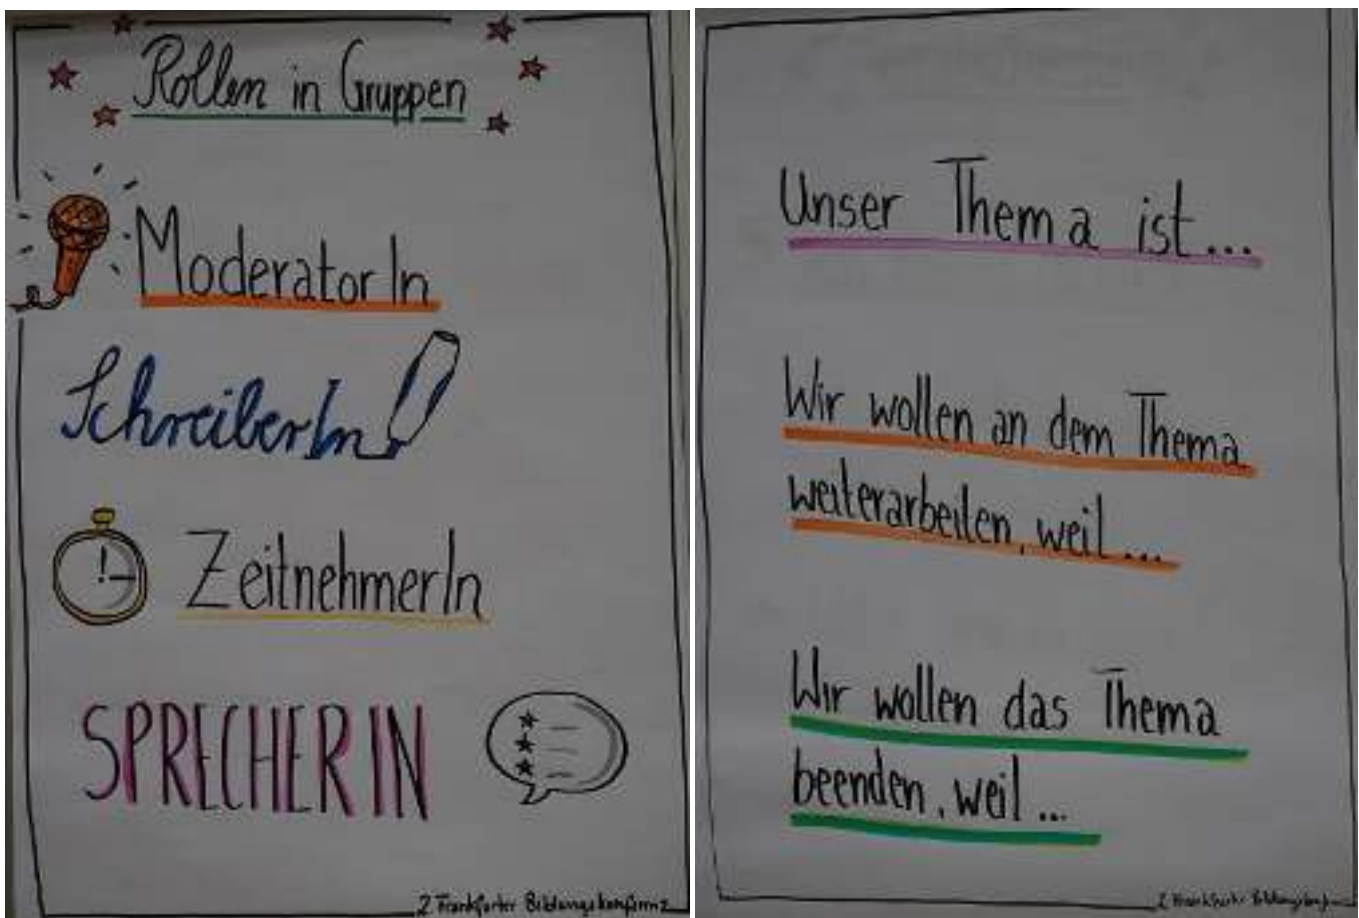 Rollen in Gruppen
ModeratorIn
SchreiberIn
ZeitnehmerIn
SPRECHERIN
2 Frankfurter Bildungskonferenz
Unser Thema ist...
Wir wollen an dem Thema
weiterarbeiten, weil...
Wir wollen das Thema
beenden, weil...
2 Frankfurter